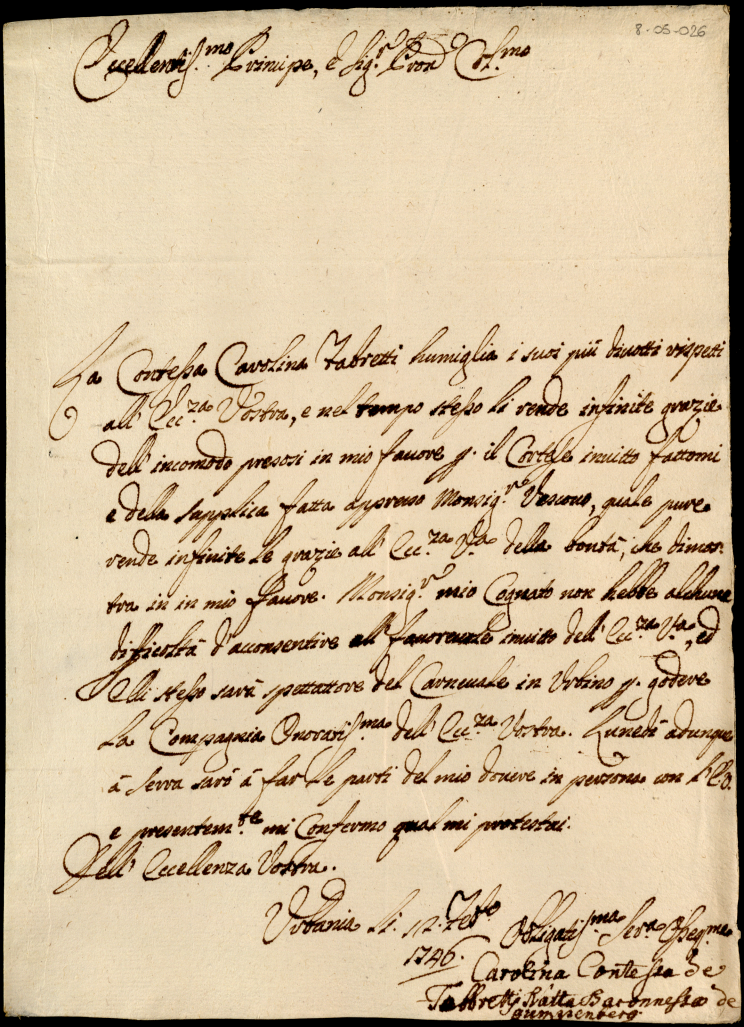 8-05-026
Eccellentis.mo Principe, e Sig.r Pron.e Col.mo
La Contessa Carolina Fabretti humiglia i suoi più diuotti rispeti
all' Ecc.za Vostra, e nel tempo stesso li rende infinite grazie
dell' incomodo presosi in mio fauore p. il Cortese inuitto fattomi
e della supplica fatta appresso Monsig.re Vescouo, quale pure
rende infinite le grazie all' Ecc.za V.a della bontà, che dimos-
tra in in mio fauore. Monsig.re mio Cognato non hebbe alchuna
difficoltà d'acconsentire all' fauoreuole inuito dell' Ecc.za V.a, ed
Elli stesso sarà spettattore del Carneuale in Vrbino p. godere
La Compagnia Onoratis.ma dell' Ecc.za Vostra. Lunedì adunque
à serra sarò à far le parti del mio douere in persona con l'E.V.
e presentem.te mi Confermo qual mi protestai.
Dell' Eccellenza Vostra.
Vrbania li 12. Feb.o
1746.
Obligatis.ma Ser.a Osseq.ma
Carolina Contessa de
Fabbretti Ratta Baronnessa de
gumppenberg